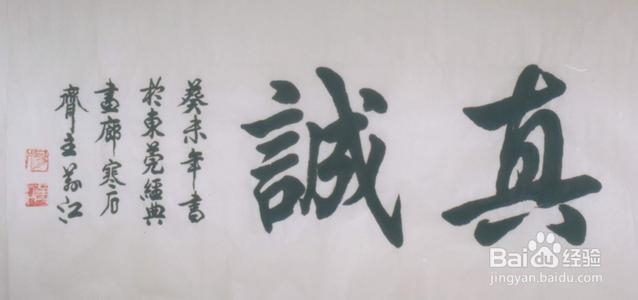 真誠
癸未年書
於東莞經典
畫廊寒石
齋主
江
Baidu经验
jingyan.baidu.com